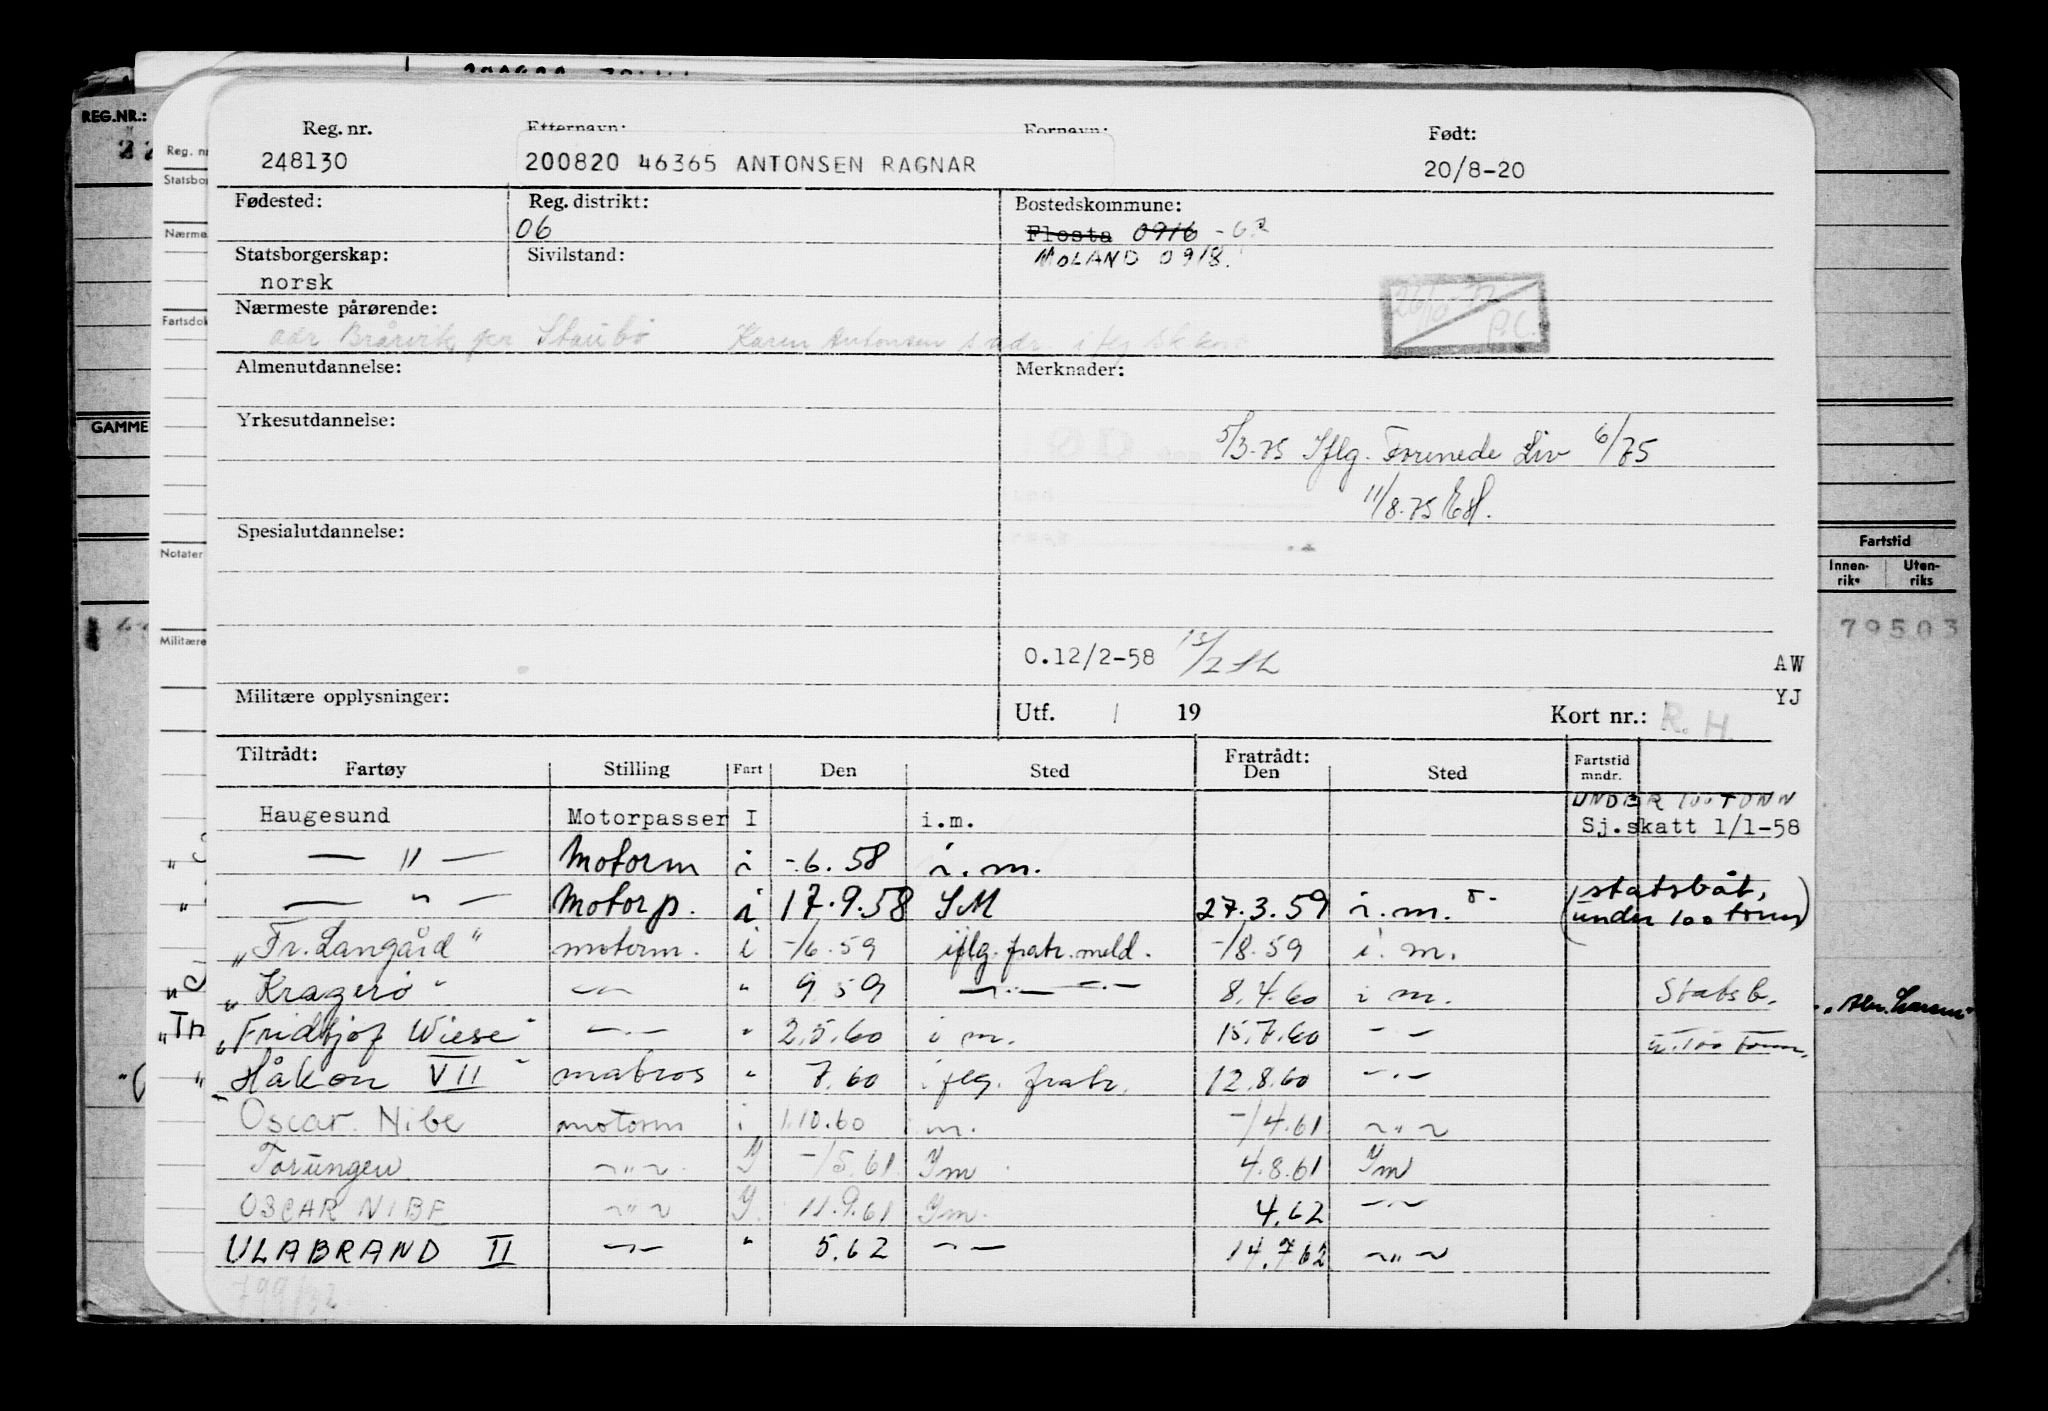 REG.NR.:
Reg. nr.
Etternavn:
Fornavn:
Født:
248130
200820 46365 ANTONSEN RAGNAR
20/8-20
Reg. nr
Statsbor
Fødested:
Reg. distrikt:
Bostedskommune:
06
Flosta 0916
Nærme
Statsborgerskap:
Sivilstand:
MOLAND 0918.
norsk
Nærmeste pårørende:
adr Bråvik per Staubø Karen Antonsen s adr. iflg
Fartsdok
Almenutdannelse:
Merknader:
GAMME
Yrkesutdannelse:
5/3-75 Iflg. Forenede Liv 6/75
11/8.75
Spesialutdannelse:
Notater
Fartstid
Innen-
riks
Uten-
riks
79503
Militære
O.12/2-58 13/2
AW
YJ
Militære opplysninger:
Utf. / 19
Kort nr.: R.H.
Tiltrådt:
Fartøy
Stilling
Fart
Den
Sted
Fratrådt:
Den
Sted
Fartstid
mndr.
UNDER 100 TONN
Haugesund Motorpasser I i.m. Sj.skatt 1/1-58
— " — Motorm i -.6.58 i.m.
— " — Motorp. i 17.9.58 SM 27.3.59 i.m. (statsbåt,
under 100 tonn)
"Fr. Langård" motorm. i -/6.59 iflg. fratr. meld. -/8.59 i.m.
"Kragerø" — " — " 9.59 — " — 8.4.60 i m. Statsb.
"Fridtjof Wiese" — " — " 2.5.60 i m. 15.7.60 — " — u. 100 tonn.
"Håkon VII" matros " 7.60 iflg. fratr. 12.8.60 — " —
Oscar Nibe motorm i 1.10.60 m. -/4.61 ~ " ~
Torungen ~ " ~ I -/5.61 Im 4.8.61 Im
OSCAR NIBE ~ " ~ I. 11.9.61 Im. 4.62 — " —
ULABRAND II — " — " 5.62 — " — 14.7.62 ~ " ~
799/32